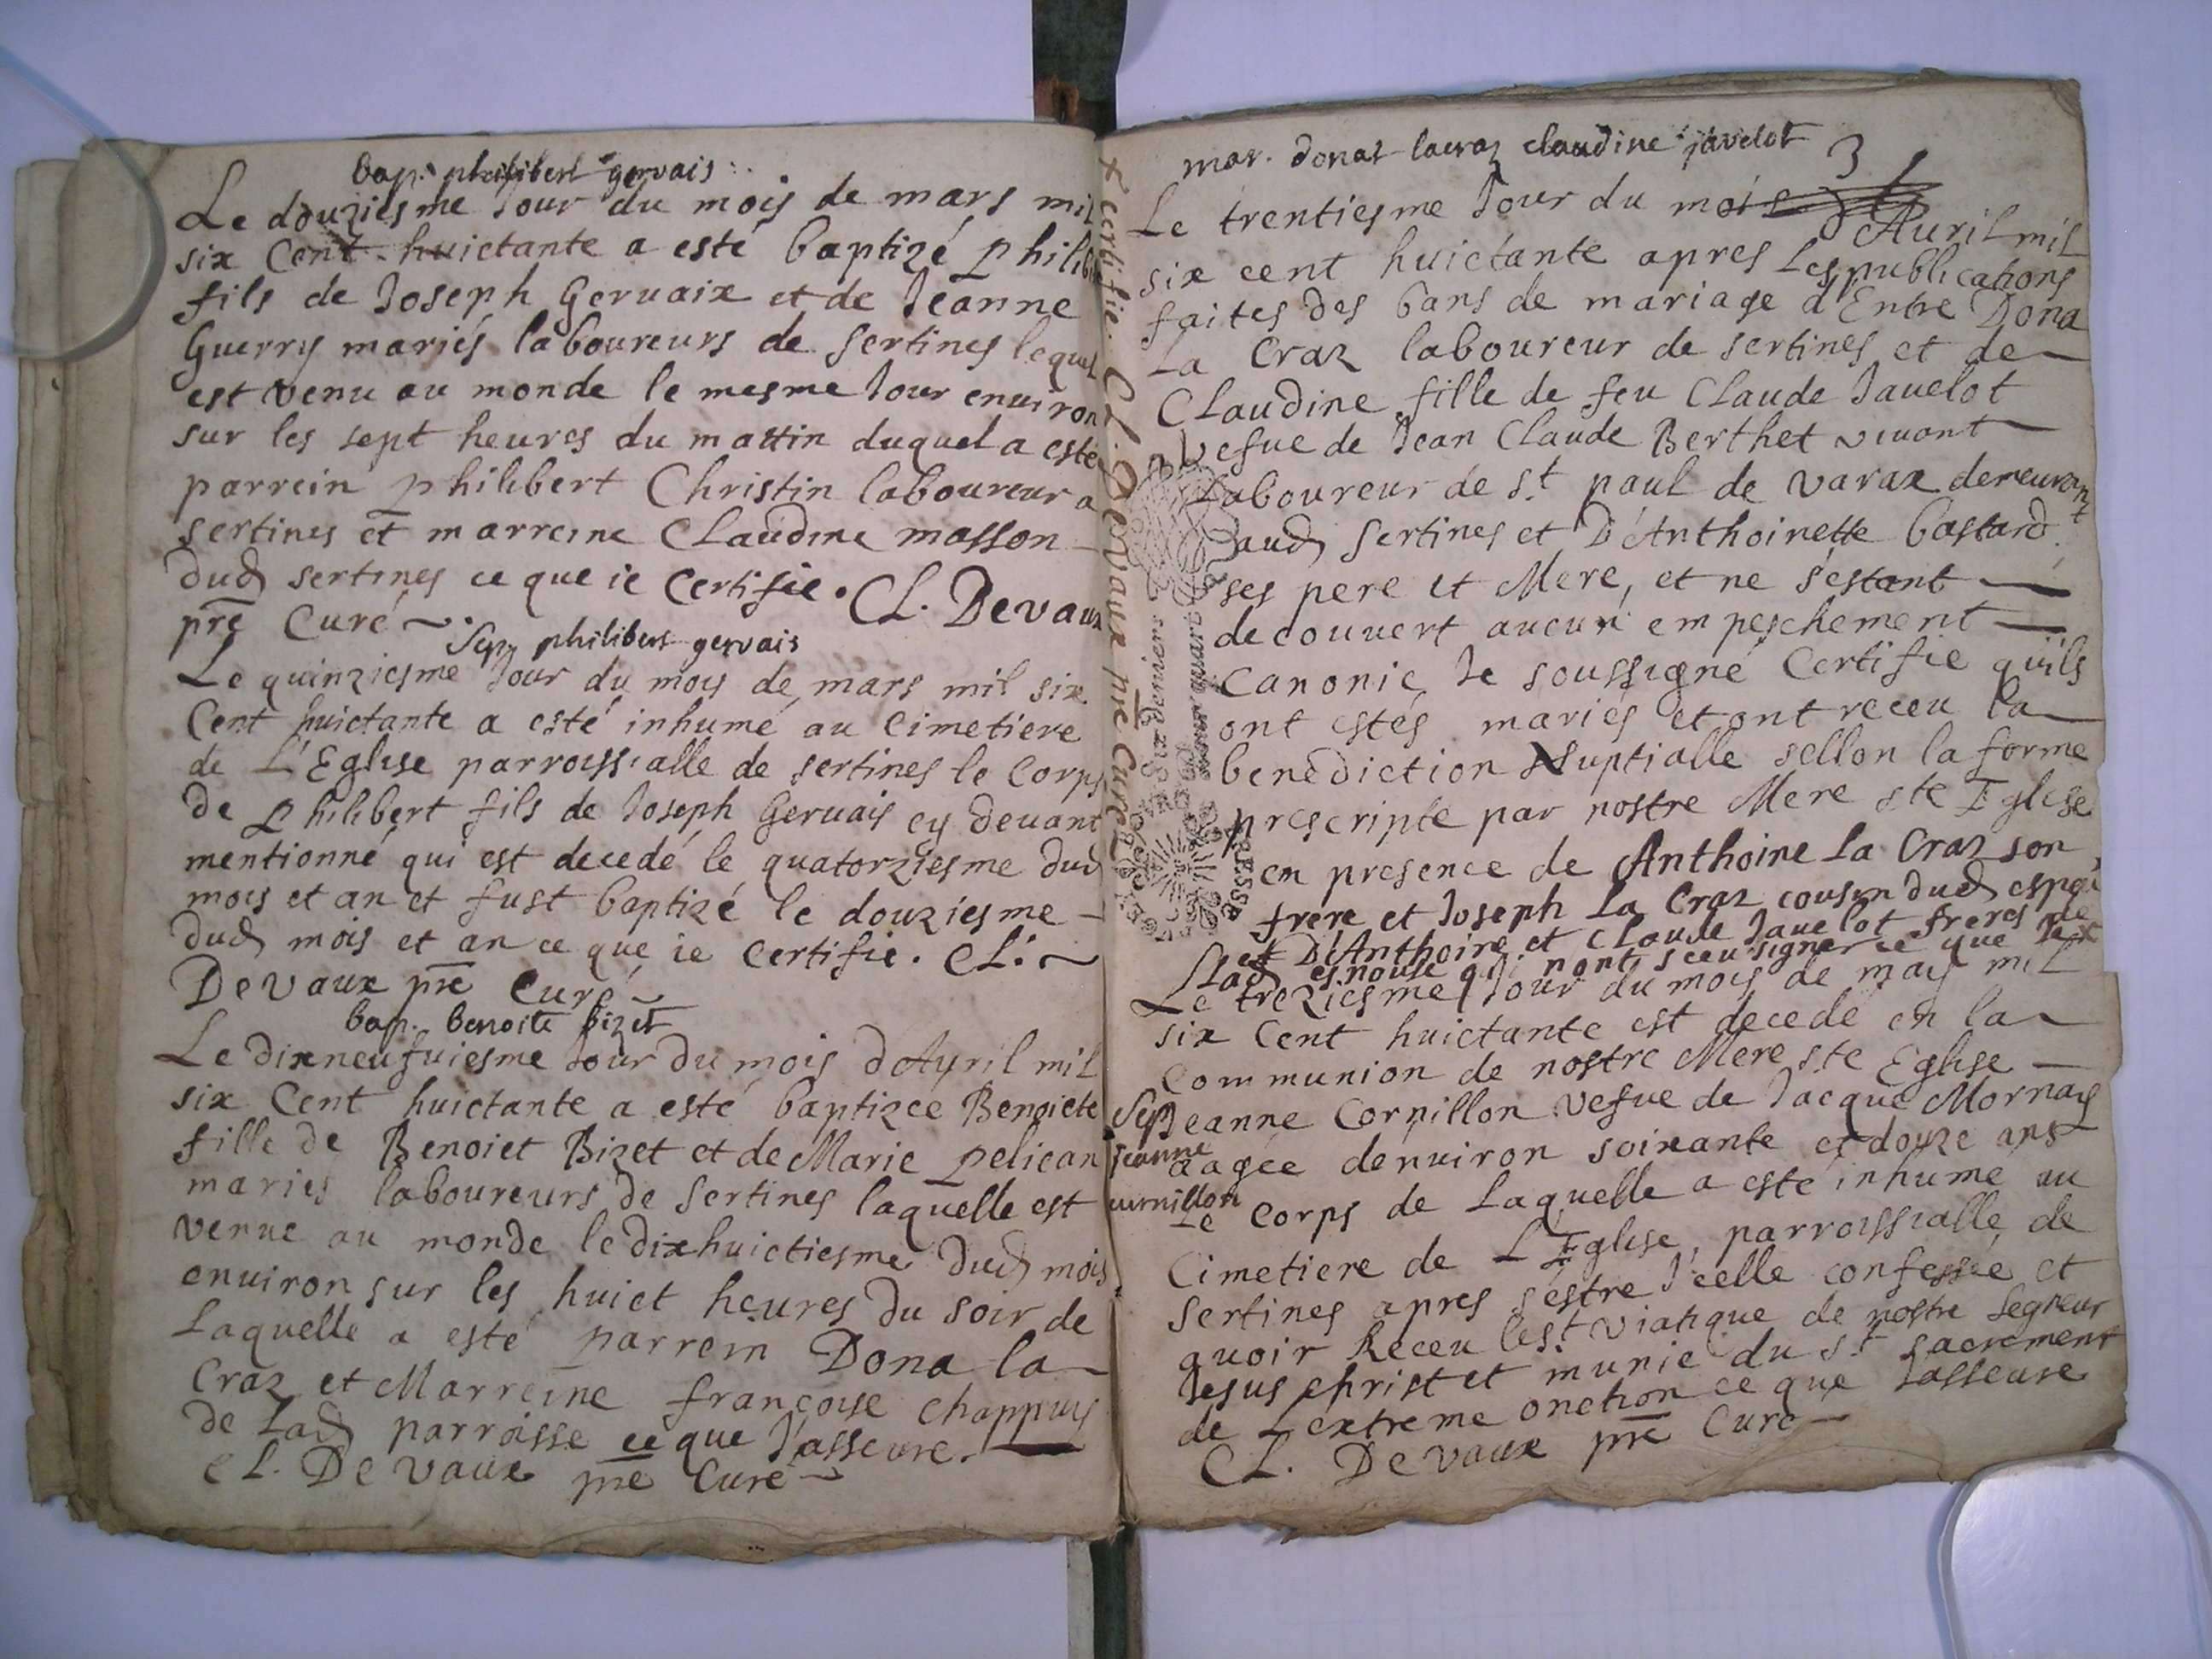 bap. philibert gervais
Le douziesme Jour du mois de mars mil
six Cent huictante a esté baptizé Philib
fils de Joseph Gervaix et de Jeanne
Guerry mariés laboureurs de sertines lequel
est venu au monde le mesme Jour enuiron
sur les sept heures du mattin duquel a esté
parrein philibert Christin laboureur a
sertines et marreine Claudine masson
dud sertines ce que ie Certifie. CL. Devaux
pre Curé
Sep philibert gervais
Le quinziesme Jour du mois de mars mil six
Cent huictante a esté inhumé au Cimetiere
de L'Eglise parroissialle de sertines le Corps
de Philibert fils de Joseph Geruais cy deuant
mentionné qui est decedé le quatorziesme dud
mois et an et fust baptizé le douziesme
dud mois et an ce que ie Certifie. CL.
Devaux pre Curé
bap. benoite bizet
Le dixneufuiesme Jour du mois d'Apuril mil
six Cent huictante a esté baptizee Benoicte
fille de Benoict Bizet et de Marie pelican
mariés laboureurs de Sertines laquelle est
venue au monde le dixhuictiesme dud mois
enuiron sur les huict heures du soir de
Laquelle a esté parrein Dona la
Craz et Marreine françoise chappuys
de Lad parroisse ce que J'asseure.
CL. Devaux pre Curé
mar. donat lacraz claudine javelot
3
Le trentiesme Jour du mois d'Auril mil
six cent huictante apres Les publications
faites des bans de mariage d'Entre Dona
La Craz laboureur de sertines et de
Claudine fille de feu Claude Jauelot
vefue de Jean Claude Berthet viuant
Laboureur de St paul de varax demeurant
aud Sertines et D'Anthoinette bastard
ses pere et Mere, et ne s'estant
decouuert aucun empeschement
Canonic Je soussigné Certifie quils
ont estés mariés et ont receu la
benediction Nuptialle sellon la forme
prescripte par nostre Mere ste Eglise
en presence de Anthoine la Craz son
frere et Joseph La Craz cousin dud espoux
et D'Anthoine et Claude Jauelot freres de
Lad espouse qui n'ont sceu signer ce que Je
x certifie. CL. Devaux pre Curé
deux deniers
BRESSE
Le treziesme Jour du mois de may mil
six Cent huictante est decedé en la
Communion de nostre Mere ste Eglise
Sep
Jeanne Cornillon vefue de Jacque Mornay
jeanne
aagée d'enuiron soixante et douze ans
curnillon
Le Corps de Laquelle a esté inhumé au
Cimetiere de L'Eglise parroissialle de
Sertines apres s'estre Icelle confessée et
auoir Receu le st viatique de nostre segneur
Jesus christ et munie du st sacrement
de L'extreme onction ce que J'asseure
CL. Devaux pre Curé